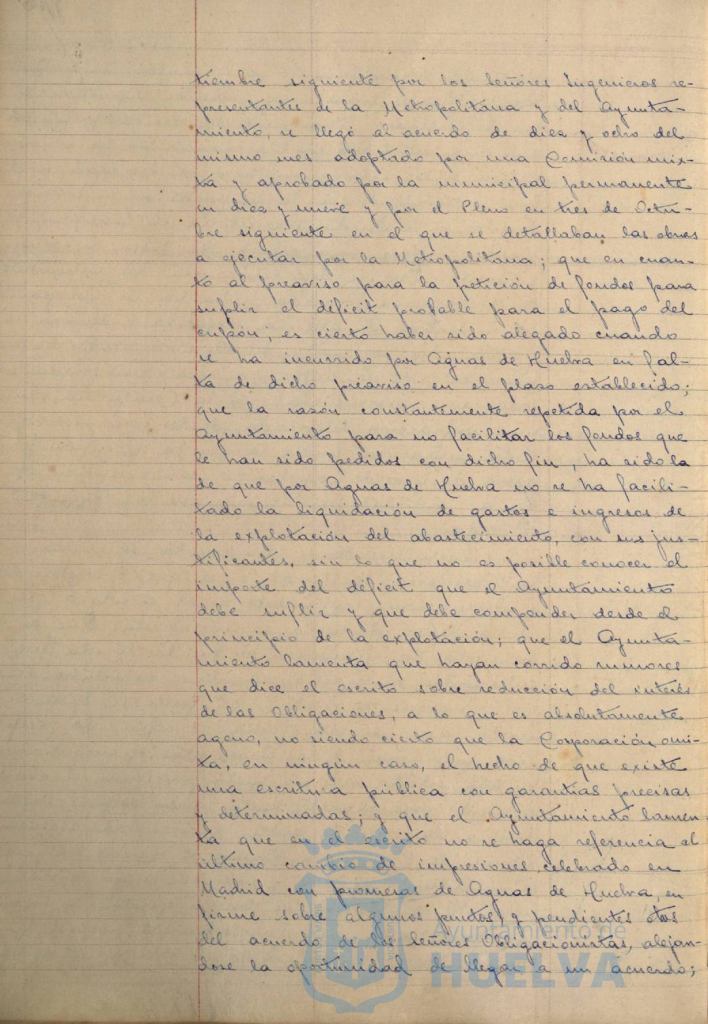 tiembre siguiente por los Señores Ingenieros re-
presentantes de la Metropolitana y del Ayunta-
miento, se llegó al acuerdo de diez y ocho del
mismo mes adoptado por una Comisión mix-
ta y aprobado por la municipal permanente
en diez y nueve y por el Pleno en tres de Octu-
bre siguiente en el que se detallaban las obras
a ejecutar por la Metropolitana; que en cuan-
to al preaviso para la petición de fondos para
suplir el déficit probable para el pago del
cupón; es cierto haber sido alegado cuando
se ha incurrido por Aguas de Huelva en fal-
ta de dicho preaviso en el plazo establecido;
que la razón constantemente repetida por el
Ayuntamiento para no facilitar los fondos que
le han sido pedidos con dicho fin, ha sido la
de que por Aguas de Huelva no se ha facili-
tado la liquidación de gastos e ingresos de
la explotación del abastecimiento, con sus jus-
tificantes, sin lo que no es posible conocer el
importe del déficit que el Ayuntamiento
debe suplir y que debe comprender desde el
principio de la explotación; que el Ayunta-
miento lamenta que hayan corrido rumores
que dice el escrito sobre reducción del interés
de las Obligaciones, a lo que es absolutamente
ageno, no siendo cierto que la Corporación omi-
ta, en ningún caso, el hecho de que existe
una escritura pública con garantías precisas
y determinadas; y que el Ayuntamiento lamen-
ta que en el escrito no se haga referencia al
último cambio de impresiones celebrado en
Madrid con promesas de Aguas de Huelva, en
firme sobre algunos puntos y pendientes otros
del acuerdo de los Señores Obligacionistas, aleján-
dose la oportunidad de llegar a un acuerdo;
Ayuntamiento de
HUELVA